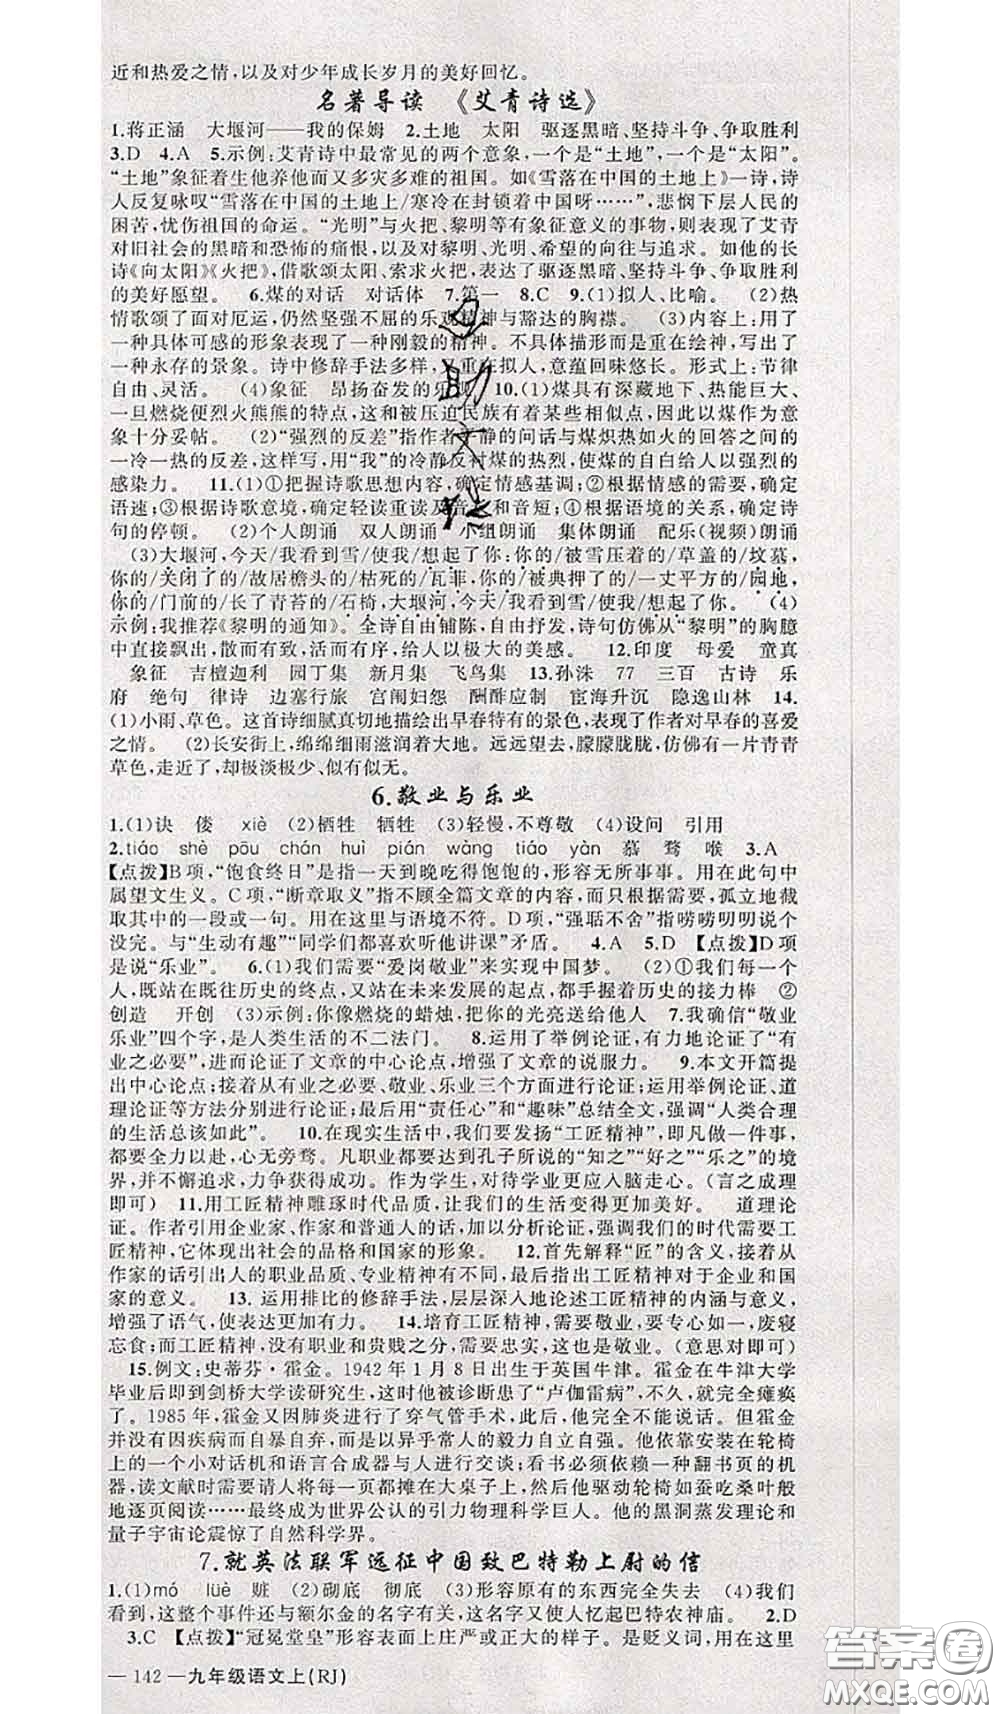 近和热爱之情,以及对少年成长岁月的美好回忆。
名著导读 《艾青诗选》
1.蒋正涵 大堰河——我的保姆 2.土地 太阳 驱逐黑暗、坚持斗争、争取胜利
3.D 4.A 5.示例:艾青诗中最常见的两个意象,一个是“土地”,一个是“太阳”。
“土地”象征着生他养他而又多灾多难的祖国。如《雪落在中国的土地上》一诗,诗
人反复咏叹“雪落在中国的土地上/寒冷在封锁着中国呀……”,悲悯下层人民的
困苦,忧伤祖国的命运。“光明”与火把、黎明等有象征意义的事物,则表现了艾青
对旧社会的黑暗和恐怖的痛恨,以及对黎明、光明、希望的向往与追求。如他的长
诗《向太阳》《火把》,借歌颂太阳、索求火把,表达了驱逐黑暗、坚持斗争、争取胜利
的美好愿望。 6.煤的对话 对话体 7.第一 8.C 9.(1)拟人、比喻。 (2)热
情歌颂了面对厄运,仍然坚强不屈的乐观精神与豁达的胸襟。 (3)内容上:用了
一种具体可感的形象表现了一种刚毅的精神。不具体描形而是重在绘神,写出了
一种永存的景象。诗中修辞手法多样,又重在拟人,意蕴回味悠长。形式上:节律
自由、灵活。 (4)象征 昂扬奋发的乐观 10.(1)煤具有深藏地下、热能巨大、
一旦燃烧便烈火熊熊的特点,这和被压迫民族有着某些相似点,因此以煤作为意
象十分妥帖。 (2)“强烈的反差”指作者平静的问话与煤炽热如火的回答之间的
一冷一热的反差,这样写,用“我”的冷静反衬煤的热烈,使煤的自白给人以强烈的
感染力。 11.(1)①把握诗歌思想内容,确定情感基调;②根据情感的需要,确定
语速;③根据诗歌意境,确定轻读重读及音长和音短;④根据语境的关系,确定诗
句的停顿。 (2)个人朗诵 双人朗诵 小组朗诵 集体朗诵 配乐(视频)朗诵
(3)大堰河,今天/我看到雪/使我/想起了你:你的/被雪压着的/草盖的/坟墓,
你的/关闭了的/故居檐头的/枯死的/瓦菲,你的/被典押了的/一丈平方的/园地,
你的/门前的/长了青苔的/石椅,大堰河,今天/我看到雪/使我/想起了你。 (4)
示例:我推荐《黎明的通知》。全诗自由铺陈,自由抒发,诗句仿佛从“黎明”的胸臆
中直接飘出,散而有致,活而有序,给人以极大的美感。 12.印度 母爱 童真
象征 吉檀迦利 园丁集 新月集 飞鸟集 13.孙洙 77 三百 古诗 乐
府 绝句 律诗 边塞行旅 宫闱妇怨 酬酢应制 宦海升沉 隐逸山林 14.
(1)小雨、草色。这首诗细腻真切地描绘出早春特有的景色,表现了作者对早春的喜爱
之情。 (2)长安街上,绵绵细雨滋润着大地。远远望去,朦朦胧胧,仿佛有一片青青
草色,走近了,却极淡极少、似有似无。
6.敬业与乐业
1.(1)诀 偻 xiè (2)栖牲 牺牲 (3)轻慢,不尊敬 (4)设问 引用
2.tiáo shè pōu chán huì pián wàng tiáo yàn 慕 骛 喉 3.A
【点拨】B项,“饱食终日”是指一天到晚吃得饱饱的,形容无所事事。用在此句中
属望文生义。C项,“断章取义”指不顾全篇文章的内容,而只根据需要,孤立地截
取其中的一段或一句。用在这里与语境不符。D项,“强聒不舍”指唠唠叨叨说个
没完。与“生动有趣”“同学们都喜欢听他讲课”矛盾。 4.A 5.D 【点拨】D项
是说“乐业”。 6.(1)我们需要“爱岗敬业”来实现中国梦。 (2)①我们每一个
人,既站在既往历史的终点,又站在未来发展的起点,都手握着历史的接力棒 ②
创造 开创 (3)示例:你像燃烧的蜡烛,把你的光亮送给他人 7.我确信“敬业
乐业”四个字,是人类生活的不二法门。 8.运用了举例论证,有力地论证了“有
业之必要”,进而论证了文章的中心论点,增强了文章的说服力。 9.本文开篇提
出中心论点;接着从有业之必要、敬业、乐业三个方面进行论证;运用举例论证、道
理论证等方法分别进行论证;最后用“责任心”和“趣味”总结全文,强调“人类合理
的生活总该如此”。 10.在现实生活中,我们要发扬“工匠精神”,即凡做一件事,
都要全力以赴,心无旁骛。凡职业都要达到孔子所说的“知之”“好之”“乐之”的境
界,并不懈追求,力争获得成功。作为学生,对待学业更应入脑走心。(言之成理
即可) 11.用工匠精神雕琢时代品质,让我们的生活变得更加美好。 道理论
证。作者引用企业家、作家和普通人的话,加以分析论证,强调我们的时代需要工
匠精神,它体现出社会的品格和国家的形象。 12.首先解释“匠”的含义,接着从
作家的话引出人的职业品质、专业精神有不同,最后指出工匠精神对于企业和国
家的意义。 13. 运用排比的修辞手法,层层深入地论述工匠精神的内涵与意义,
增强了语气,使表达更加有力。 14.培育工匠精神,需要敬业,要专心如一,废寝
忘食;而工匠精神,没有职业和贵贱之分,更多的是执着,也是敬业。(意思对即可)
15.例文:史蒂芬·霍金。1942年1月8日出生于英国牛津。霍金在牛津大学
毕业后即到剑桥大学读研究生,这时他被诊断患了“卢伽雷病”,不久,就完全瘫痪
了。1985年,霍金又因肺炎进行了穿气管手术,此后,他完全不能说话。但霍金
并没有因疾病而自暴自弃,而是以异乎常人的毅力自立自强。他依靠安装在轮椅
上的一个小对话机和语言合成器与人进行交谈;看书必须依赖一种翻书页的机
器,读文献时需要请人将每一页都摊在大桌子上,然后他驱动轮椅如蚕吃桑叶般
地逐页阅读……最终成为世界公认的引力物理科学巨人。他的黑洞蒸发理论和
量子宇宙论震惊了自然科学界。
7.就英法联军远征中国致巴特勒上尉的信
1.(1)mó lüè 赃 (2)砌底 彻底 (3)形容原有的东西完全失去 (4)我们
看到,这整个事件还与额尔金的名字有关,这名字又使人忆起巴特农神庙。 2.D
3.C 【点拨】“冠冕堂皇”形容表面上庄严或正大的样子。是贬义词,用在这里
— 142 —九年级语文上(RJ)
答案圈
MXQE.COM